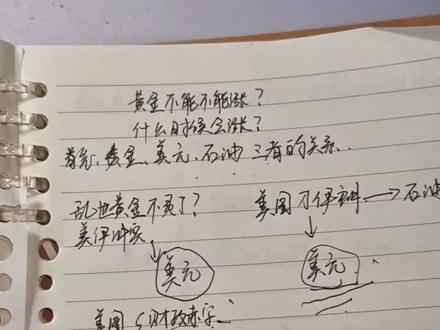 黄金不能不能涨？
什么时候会涨？
首先，黄金、美元、石油 三者的关系..
乱世黄金不灵了？
美伊冲突
美元
美国 伊朗 → 石油
美元
美国 财政赤字